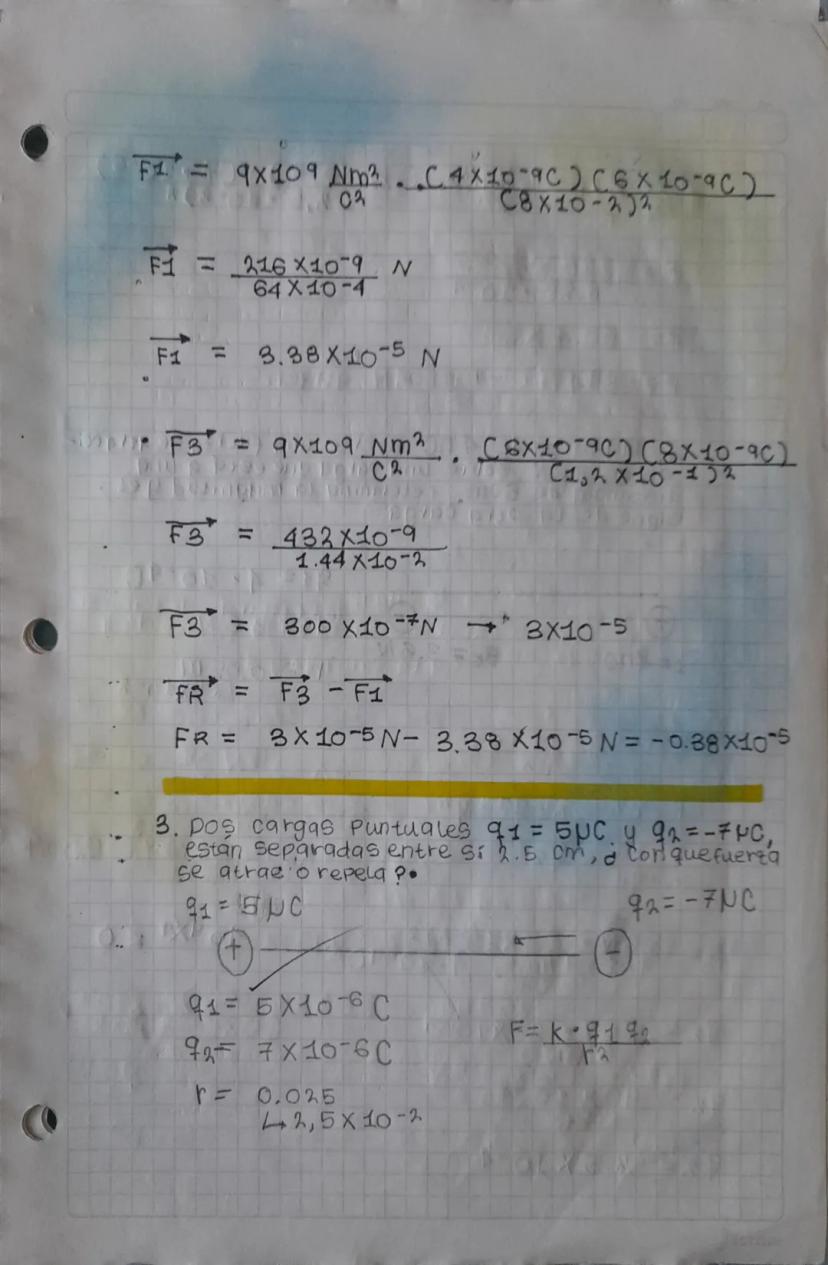 F1 = 9x109 Nm2/C2 . (4x10-9C)(6x10-9C)/(8x10-2)2
F1 = 216x10-9/64x10-4 N
F1 = 3.38x10-5 N
F3 = 9x109 Nm2/C2 . (6x10-9C)(8x10-9C)/(1,2x10-1)2
F3 = 432x10-9/1.44x10-2
F3 = 300x10-7N → 3x10-5
FR = F3 - F1
FR = 3x10-5N- 3.38x10-5N = -0.38x10-5
3. Dos cargas Puntuales q1 = 5µC y q2 = -7µC,
están separadas entre sí 2.5 cm, ¿ con que fuerza
se atrae o repela?
q1 = 5µC q2 = -7µC
+ -
q1 = 5x10-6 C
q2 = 7x10-6C
F = k·q1q2/r2
r = 0.025
↳ 2,5x10-2